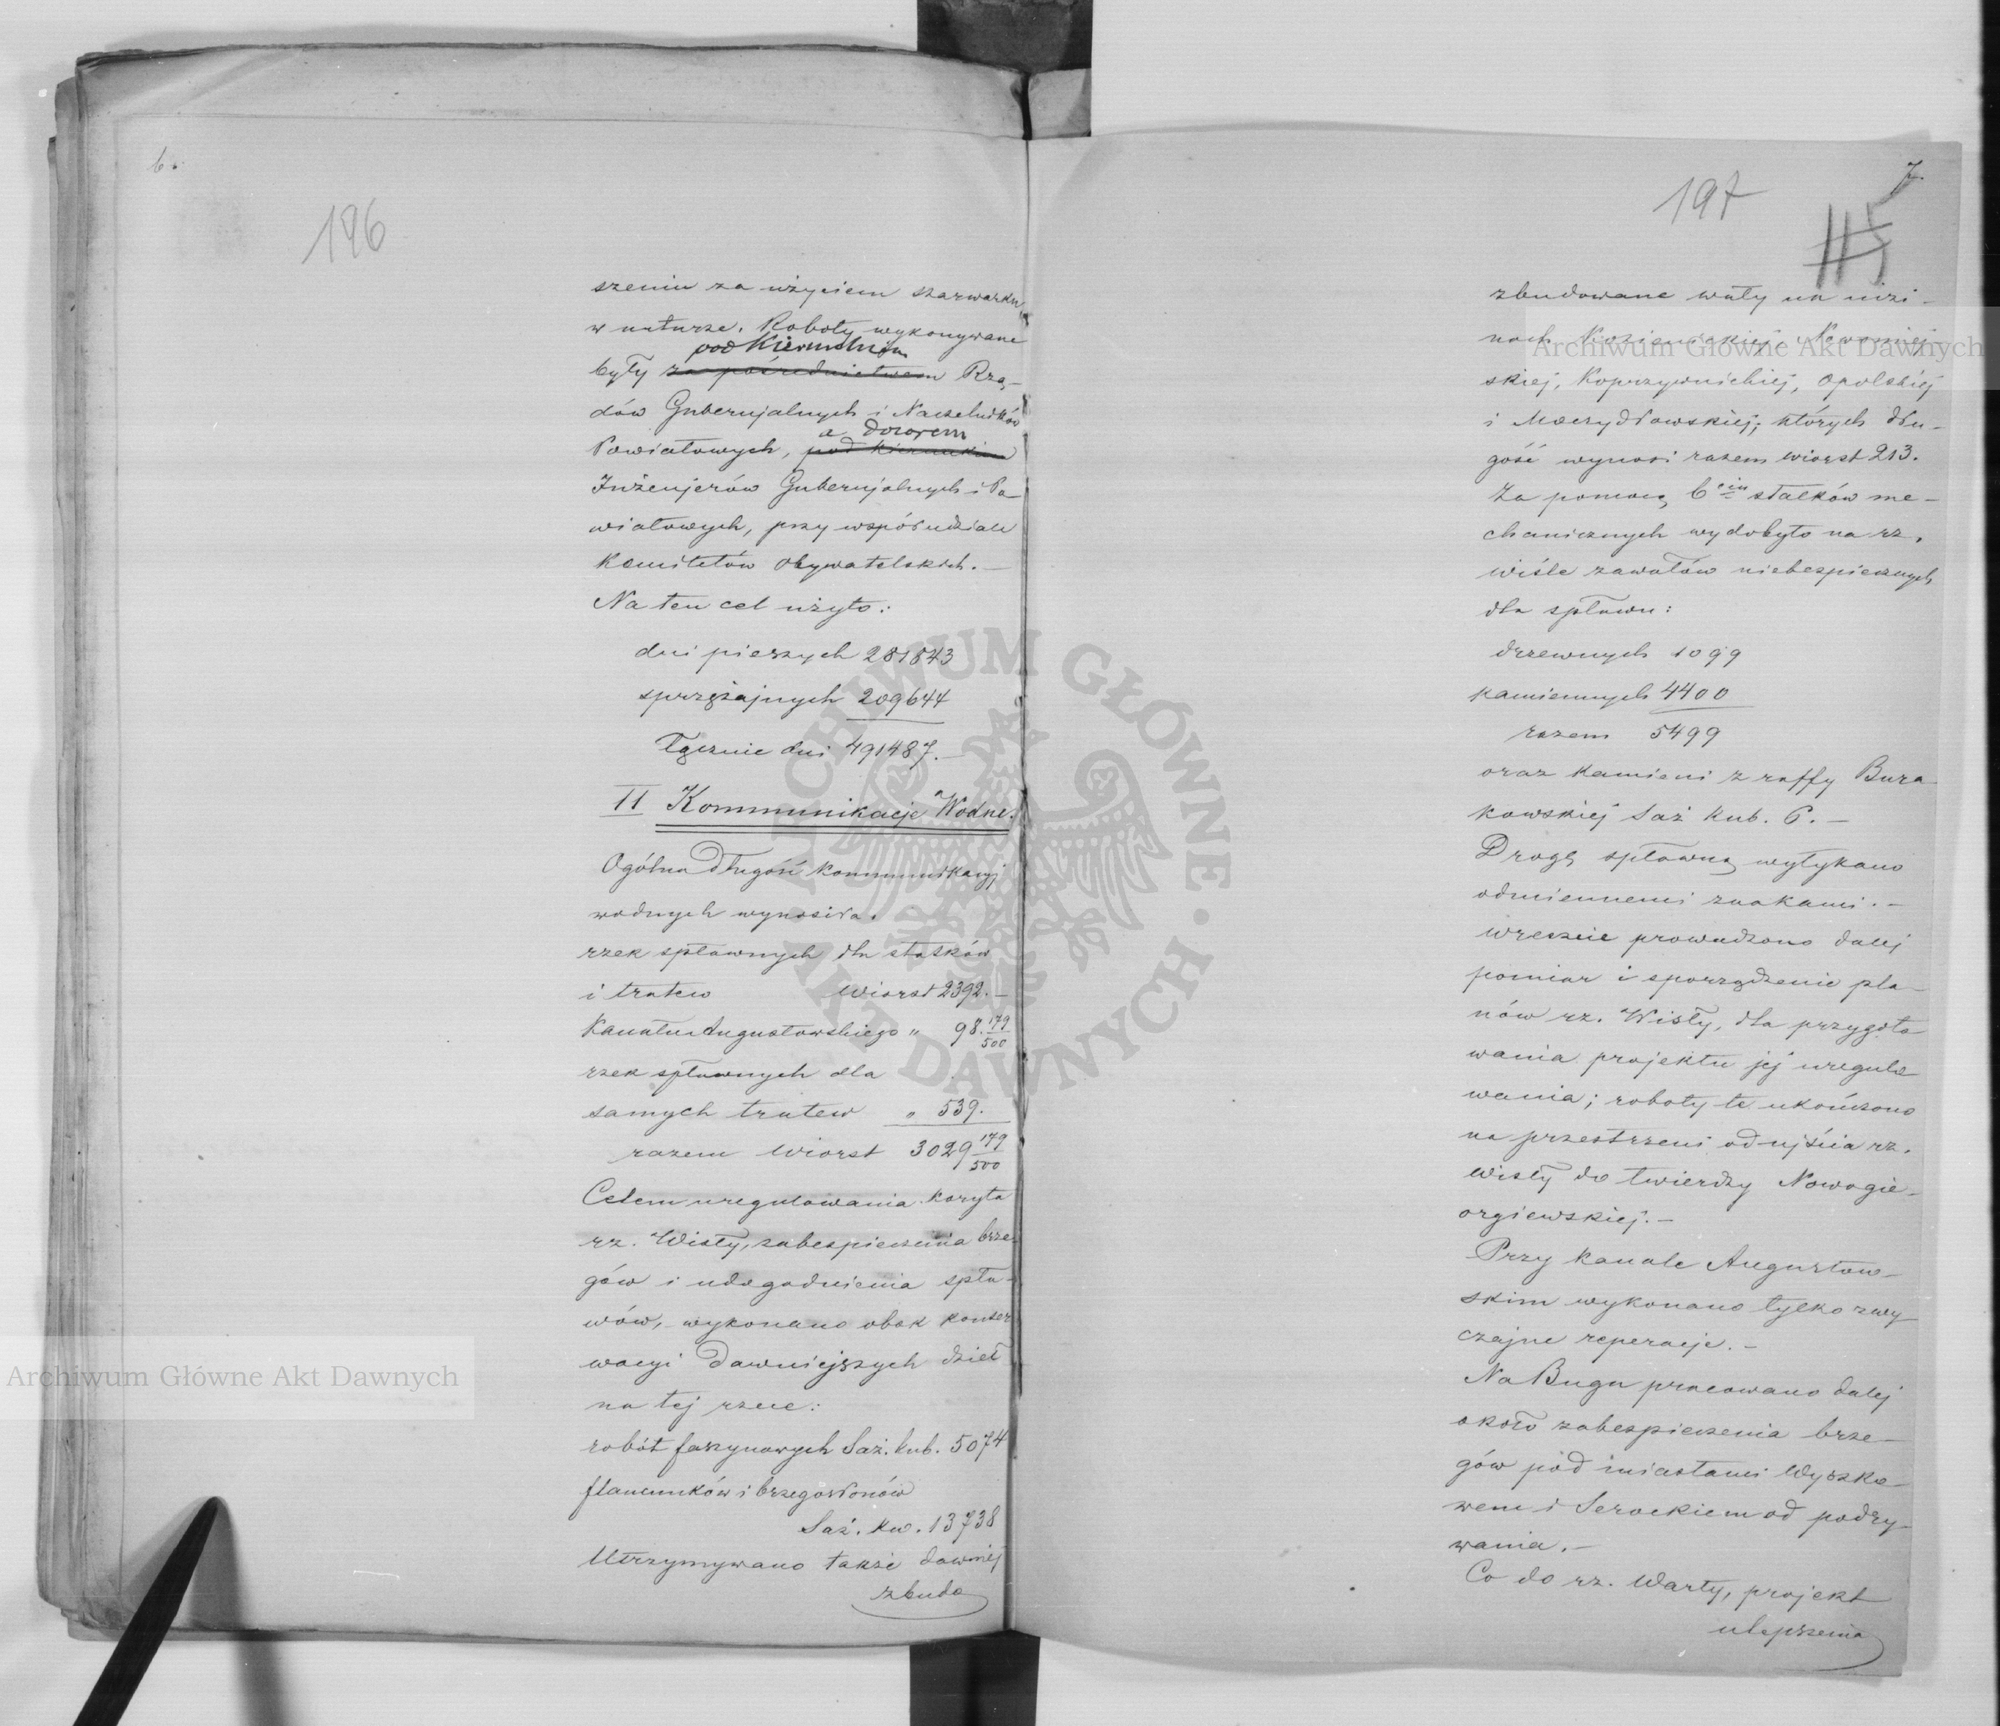 6.
196
szeniu za użyciem szarwarku
w naturze. Roboty wykonywane
pod Kierunkiem
były za pośrednictwem Rzą-
dów Gubernjalnych i Naczelników
a dozorem
Powiatowych, pod kierunkiem
Inżenjerów Gubernjalnych i Po-
wiatowych, przy współudziale
Komitetów Obywatelskich. —
Na ten cel użyto:
dni pieszych 281843
sprzężajnych 209644
Łącznie dni 491487. —
II Kommunikacje Wodne.
Ogólna długość kommunikacyj
wodnych wynosiła.
rzek spławnych dla statków
i tratew Wiorst 2392. —
Kanału Augustowskiego " 98. 179/500
rzek spławnych dla
samych tratew " 539.
razem Wiorst 3029 179/500
Celem uregulowania koryta
rz. Wisły, zabezpieczenia brze-
gów i udogodnienia spła-
wów, wykonano obok konser
wacyi dawniejszych dzieł
na tej rzece:
robót faszynowych Saż. kub. 5074
flancunków i brzegosłonów
Saż. kw. 13738
Utrzymywano także dawniej
zbudo
7.
197
115
zbudowane wały na nizi-
nach Kozienickiej, Nowomiej-
skiej, Koprzywnickiej, Opolskiej
i Moczydłowskiej, których dłu-
gość wynosi razem wiorst 213.
Za pomocą 6ciu statków me-
chanicznych wydobyto na rz.
Wiśle zawałów niebezpiecznych
dla spławu:
drzewnych 1099
kamiennych 4400
razem 5499
oraz kamieni z raffy Bura
kowskiej Saż kub. 6. —
Drogę spławną wytykano
odmiennemi znakami. —
Wreszcie prowadzono dalej
pomiar i sporządzenie pla-
nów rz. Wisły, dla przygoto-
wania projektu jej uregulo
wania; roboty te ukończono
na przestrzeni od ujścia rz.
Wisły do twierdzy Nowogie-
orgiewskiej. —
Przy kanale Augustow-
skim wykonano tylko zwy
czajne reperacje. —
Na Bugu pracowano dalej
około zabezpieczenia brze-
gów pod miastami Wyszko-
wem i Serockiem od podry-
wania. —
Co do rz. Warty, projekt
ulepszenia
Archiwum Główne Akt Dawnych
Archiwum Główne Akt Dawnych
ARCHIWUM GŁÓWNE AKT DAWNYCH